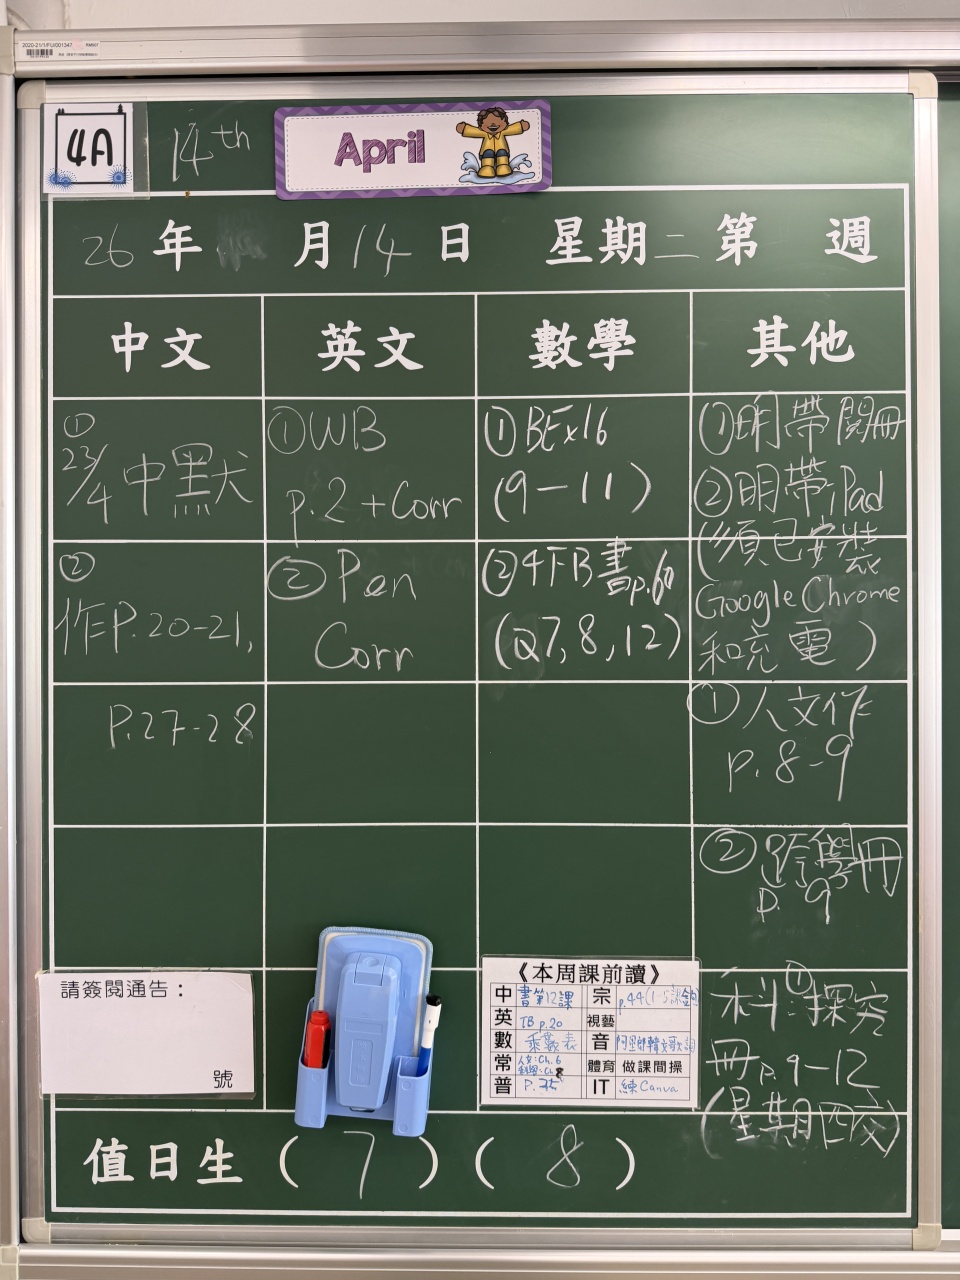 2020-21/1/FU/001347
RM507
4A
14th
April
26年 月14日 星期二第 週
中文
英文
數學
其他
①
23/4 中默
②
作P.20-21,
P.27-28
①WB
p.2 +Corr
②Pen
Corr
①BEx16
(9-11)
②4FB書p.60
(Q7,8,12)
①明帶閱冊
②明帶iPad
(須已安裝
Google Chrome
和充電)
①人文作
p.8-9
②跨學冊
p.9
科:①探究
冊p.9-12
(星期四交)
請簽閱通告：
號
《本周課前讀》
中 書第12課
宗 p.44(1-5課金句)
英 TB p.20
視藝
數 乘數表
音
常 人文:Ch.6
體育 做課間操
普 P.35
IT 練Canva
值日生(7)(8)